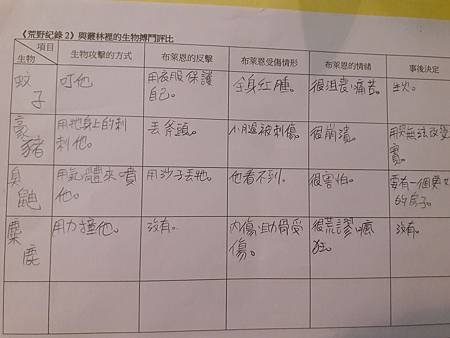 《荒野紀錄 2》與叢林裡的生物搏鬥評比
項目 生物 生物攻擊的方式 布萊恩的反擊 布萊恩受傷情形 布萊恩的情緒 事後決定
蚊子 叮他 用衣服保護自己。 全身紅腫。 很沮喪、痛苦。 生火。
豪豬 用牠身上的刺刺他。 丟斧頭。 小腿被刺傷。 很崩潰。 用哭無法改變
臭鼬 用氣體來噴他。 用沙子丟牠。 他看不到。 很害怕。 要有一個 的房子。
麋鹿 用力撞他。 沒有。 內傷、肋骨受傷。 很荒謬、瘋狂。 沒有。